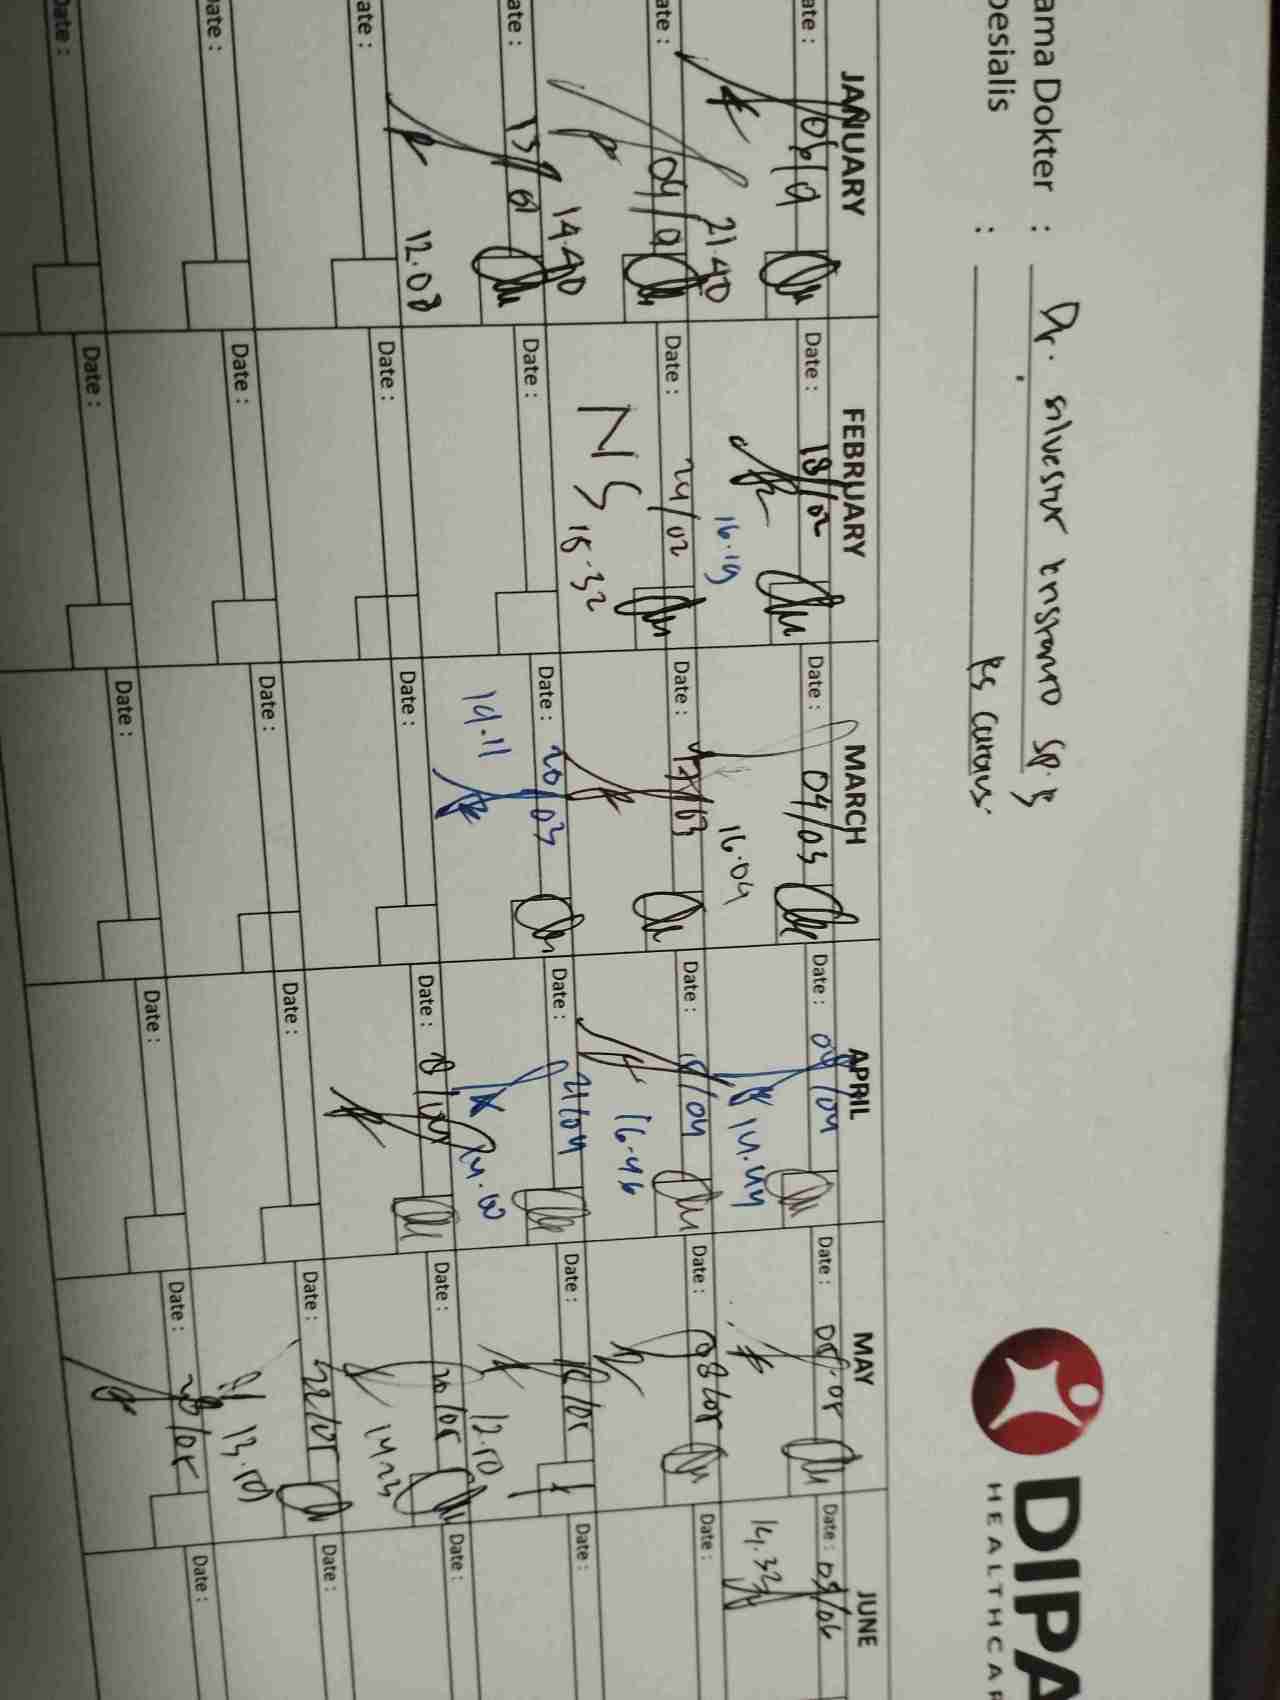 DIPA
HEALTHCAR
ama Dokter : Dr. silvester
pesialis : RS
JANUARY FEBRUARY MARCH APRIL MAY JUNE
ate : 06/01 Date : 18/02 Date : 04/03 Date : 08/04 Date : 05/05 Date : 05/06
21.40 16.19 16.04 14.44 14.32
ate : 09/01 Date : 24/02 Date : 17/03 Date : 15/04 Date : 08/05 Date :
14.40 NS 15.32 16.46
ate : 13/01 Date : Date : 20/03 Date : 21/04 Date : Date :
12.08 14.11 12.10
ate : Date : Date : Date : Date : 20/05 Date :
14.23
ate : Date : Date : Date : Date : 22/05 Date :
13.10
ate : Date : Date : Date : Date : Date :